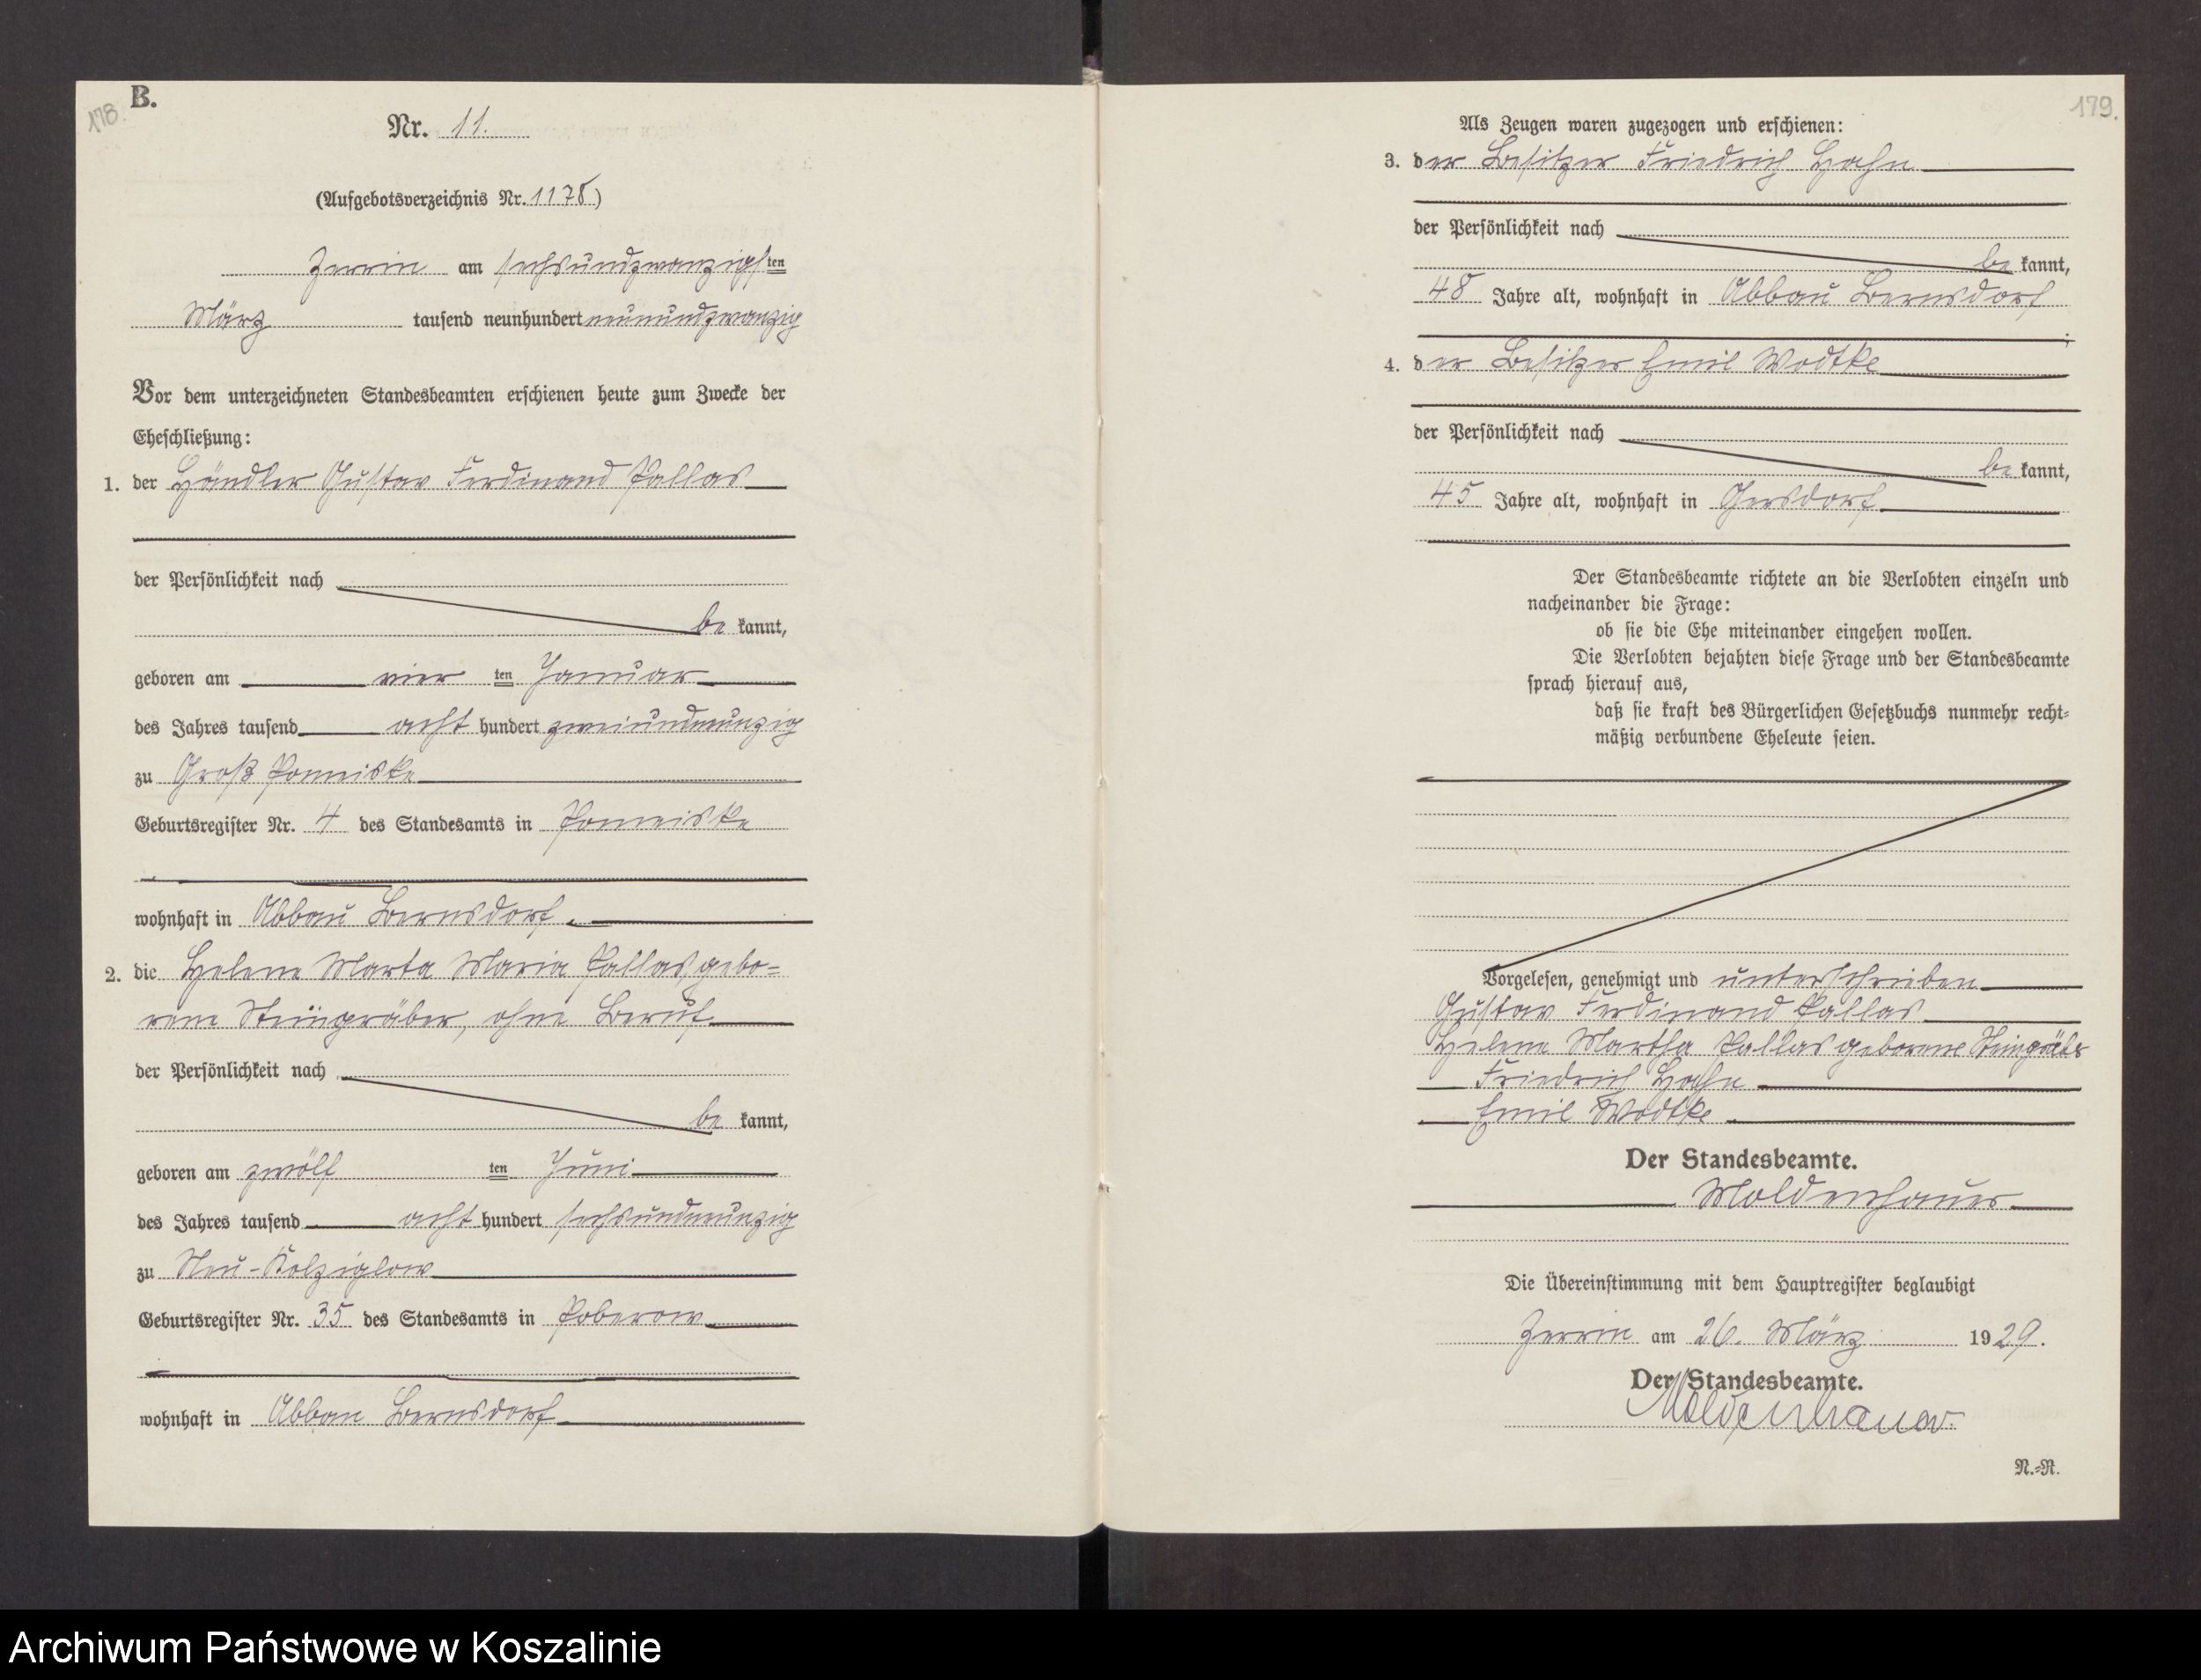 178.
B.
Nr. 11.
(Aufgebotsverzeichnis Nr. 1178)
Zerrin am sechsundzwanzigsten
März tausend neunhundert neunundzwanzig
Vor dem unterzeichneten Standesbeamten erschienen heute zum Zwecke der
Eheschließung:
1. der Händler Gustav Ferdinand Pallas
der Persönlichkeit nach
be kannt,
geboren am vier ten Januar
des Jahres tausend acht hundert zweiundneunzig
zu Groß Pomeiske
Geburtsregister Nr. 4 des Standesamts in Pomeiske
wohnhaft in Abbau Bernsdorf.
2. die Helene Marta Maria Pallas, gebo-
rene Steingräber, ohne Beruf
der Persönlichkeit nach
be kannt,
geboren am zwölf ten Juni
des Jahres tausend acht hundert sechsundneunzig
zu Neu-Kolziglow
Geburtsregister Nr. 35 des Standesamts in Poberow
wohnhaft in Abbau Bernsdorf
179.
Als Zeugen waren zugezogen und erschienen:
3. der Besitzer Friedrich Hahn
der Persönlichkeit nach
be kannt,
48 Jahre alt, wohnhaft in Abbau Bernsdorf
;
4. der Besitzer Emil Wodtke
der Persönlichkeit nach
be kannt,
45 Jahre alt, wohnhaft in Gersdorf
Der Standesbeamte richtete an die Verlobten einzeln und
nacheinander die Frage:
ob sie die Ehe miteinander eingehen wollen.
Die Verlobten bejahten diese Frage und der Standesbeamte
sprach hierauf aus,
daß sie kraft des Bürgerlichen Gesetzbuchs nunmehr recht-
mäßig verbundene Eheleute seien.
Vorgelesen, genehmigt und unterschrieben
Gustav Ferdinand Pallas
Helene Martha Pallas geborene Steingräber
Friedrich Hahn
Emil Wodtke
Der Standesbeamte.
Moldenhauer
Die Übereinstimmung mit dem Hauptregister beglaubigt
Zerrin am 26. März 1929.
Der Standesbeamte.
Moldenhauer.
N.-R.
Archiwum Państwowe w Koszalinie